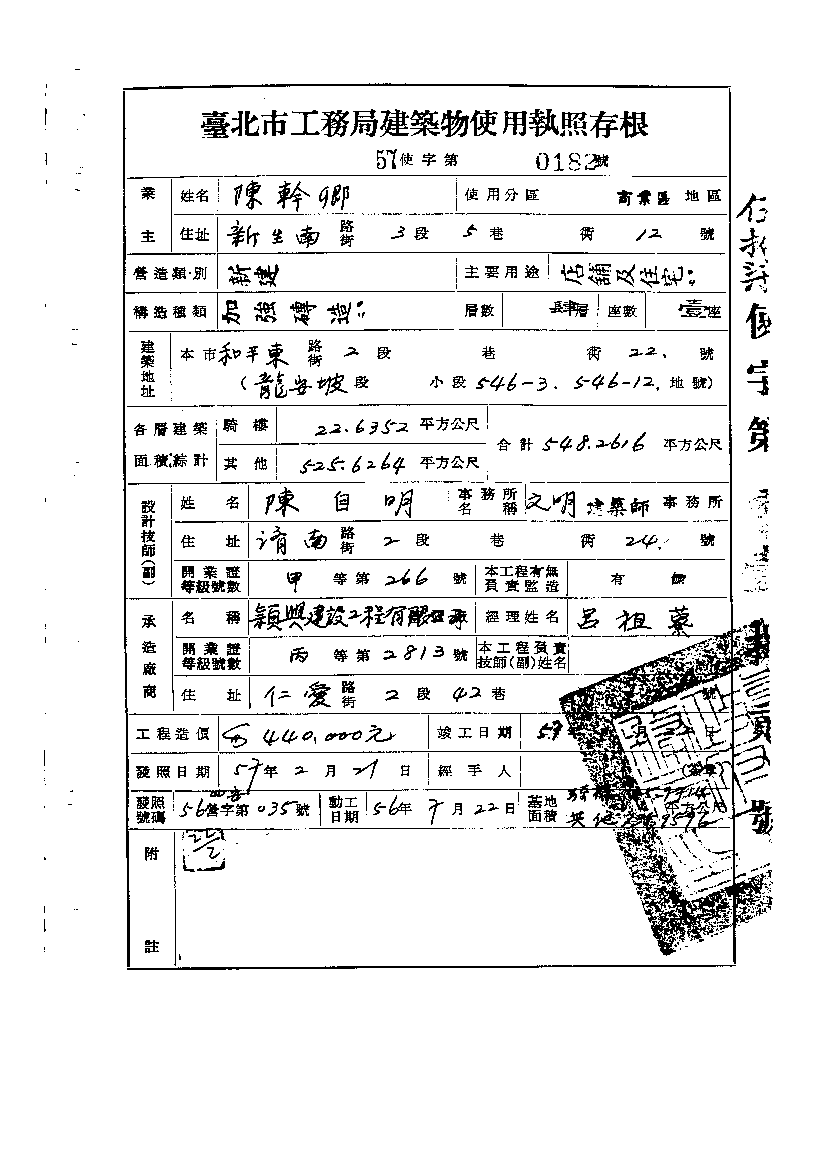 臺北市工務局建築物使用執照存根
57使字第 0182號
業主 姓名 陳幹卿 使用分區 商業區地區
住址 新生南路街 3段 5巷 衖 12 號
營造類別 新建 主要用途 店舖及住宅
構造種類 加強磚造 層數 肆層 座數 壹座
建築地址 本市和平東路街 2段 巷 衖 22. 號
(龍安坡段 小段 546-3. 546-12. 地號)
各層建築面積綜計 騎樓 22.6352 平方公尺 合計 548.2616 平方公尺
其他 525.6264 平方公尺
設計技師(副) 姓名 陳自明 事務所名稱 文明建築師事務所
住址 濟南路街 2段 巷 衖 24. 號
開業證等級號數 甲等第 266 號 本工程有無負責監造 有
承造廠商 名稱 穎興建設工程有限公司 經理姓名 呂祖
開業證等級號數 丙等第 2813 號 本工程負責技師(副)姓名
住址 仁愛路街 2段 42巷 號
工程造價 440,000元 竣工日期 57年 月 日
發照日期 57年 2月 21日 經手人 (簽章)
發照號碼 56營字第 035號 動工日期 56年 7月 22日 基地面積 平方公尺
其他
附註
使字第 號